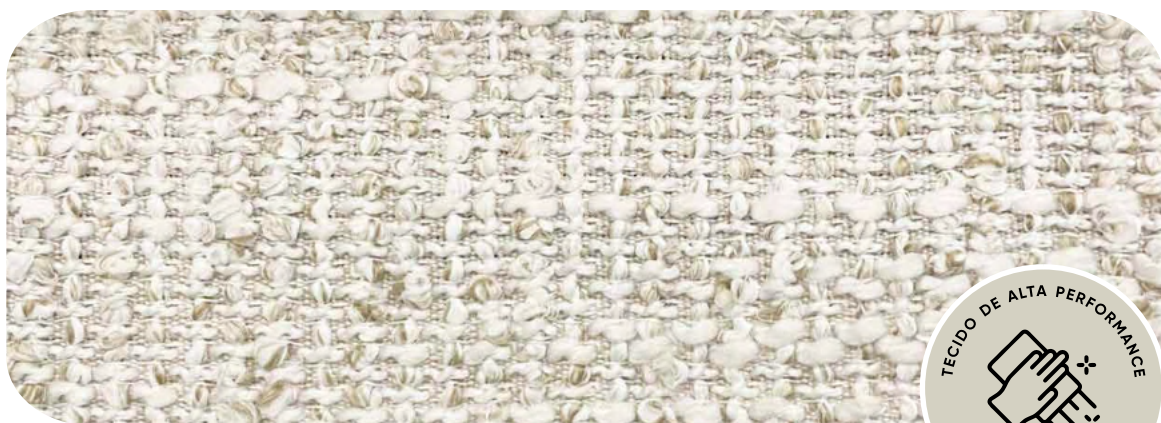 TECIDO DE ALTA PERFORMANCE